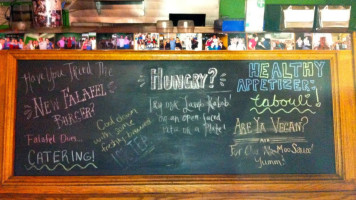 Have You Tried The
New Falafel
Burger?
Falafel Dun...
CATERING!
Cool down
with some
freshly brewed
ICED TEA
HUNGRY?
Try our Lamb Kabob!
on an open faced
Pita on a Plate!
HEALTHY
APPETIZER:
tabouli!
ARE YA VEGAN?
For Our No Moo Sauce
Yumm!